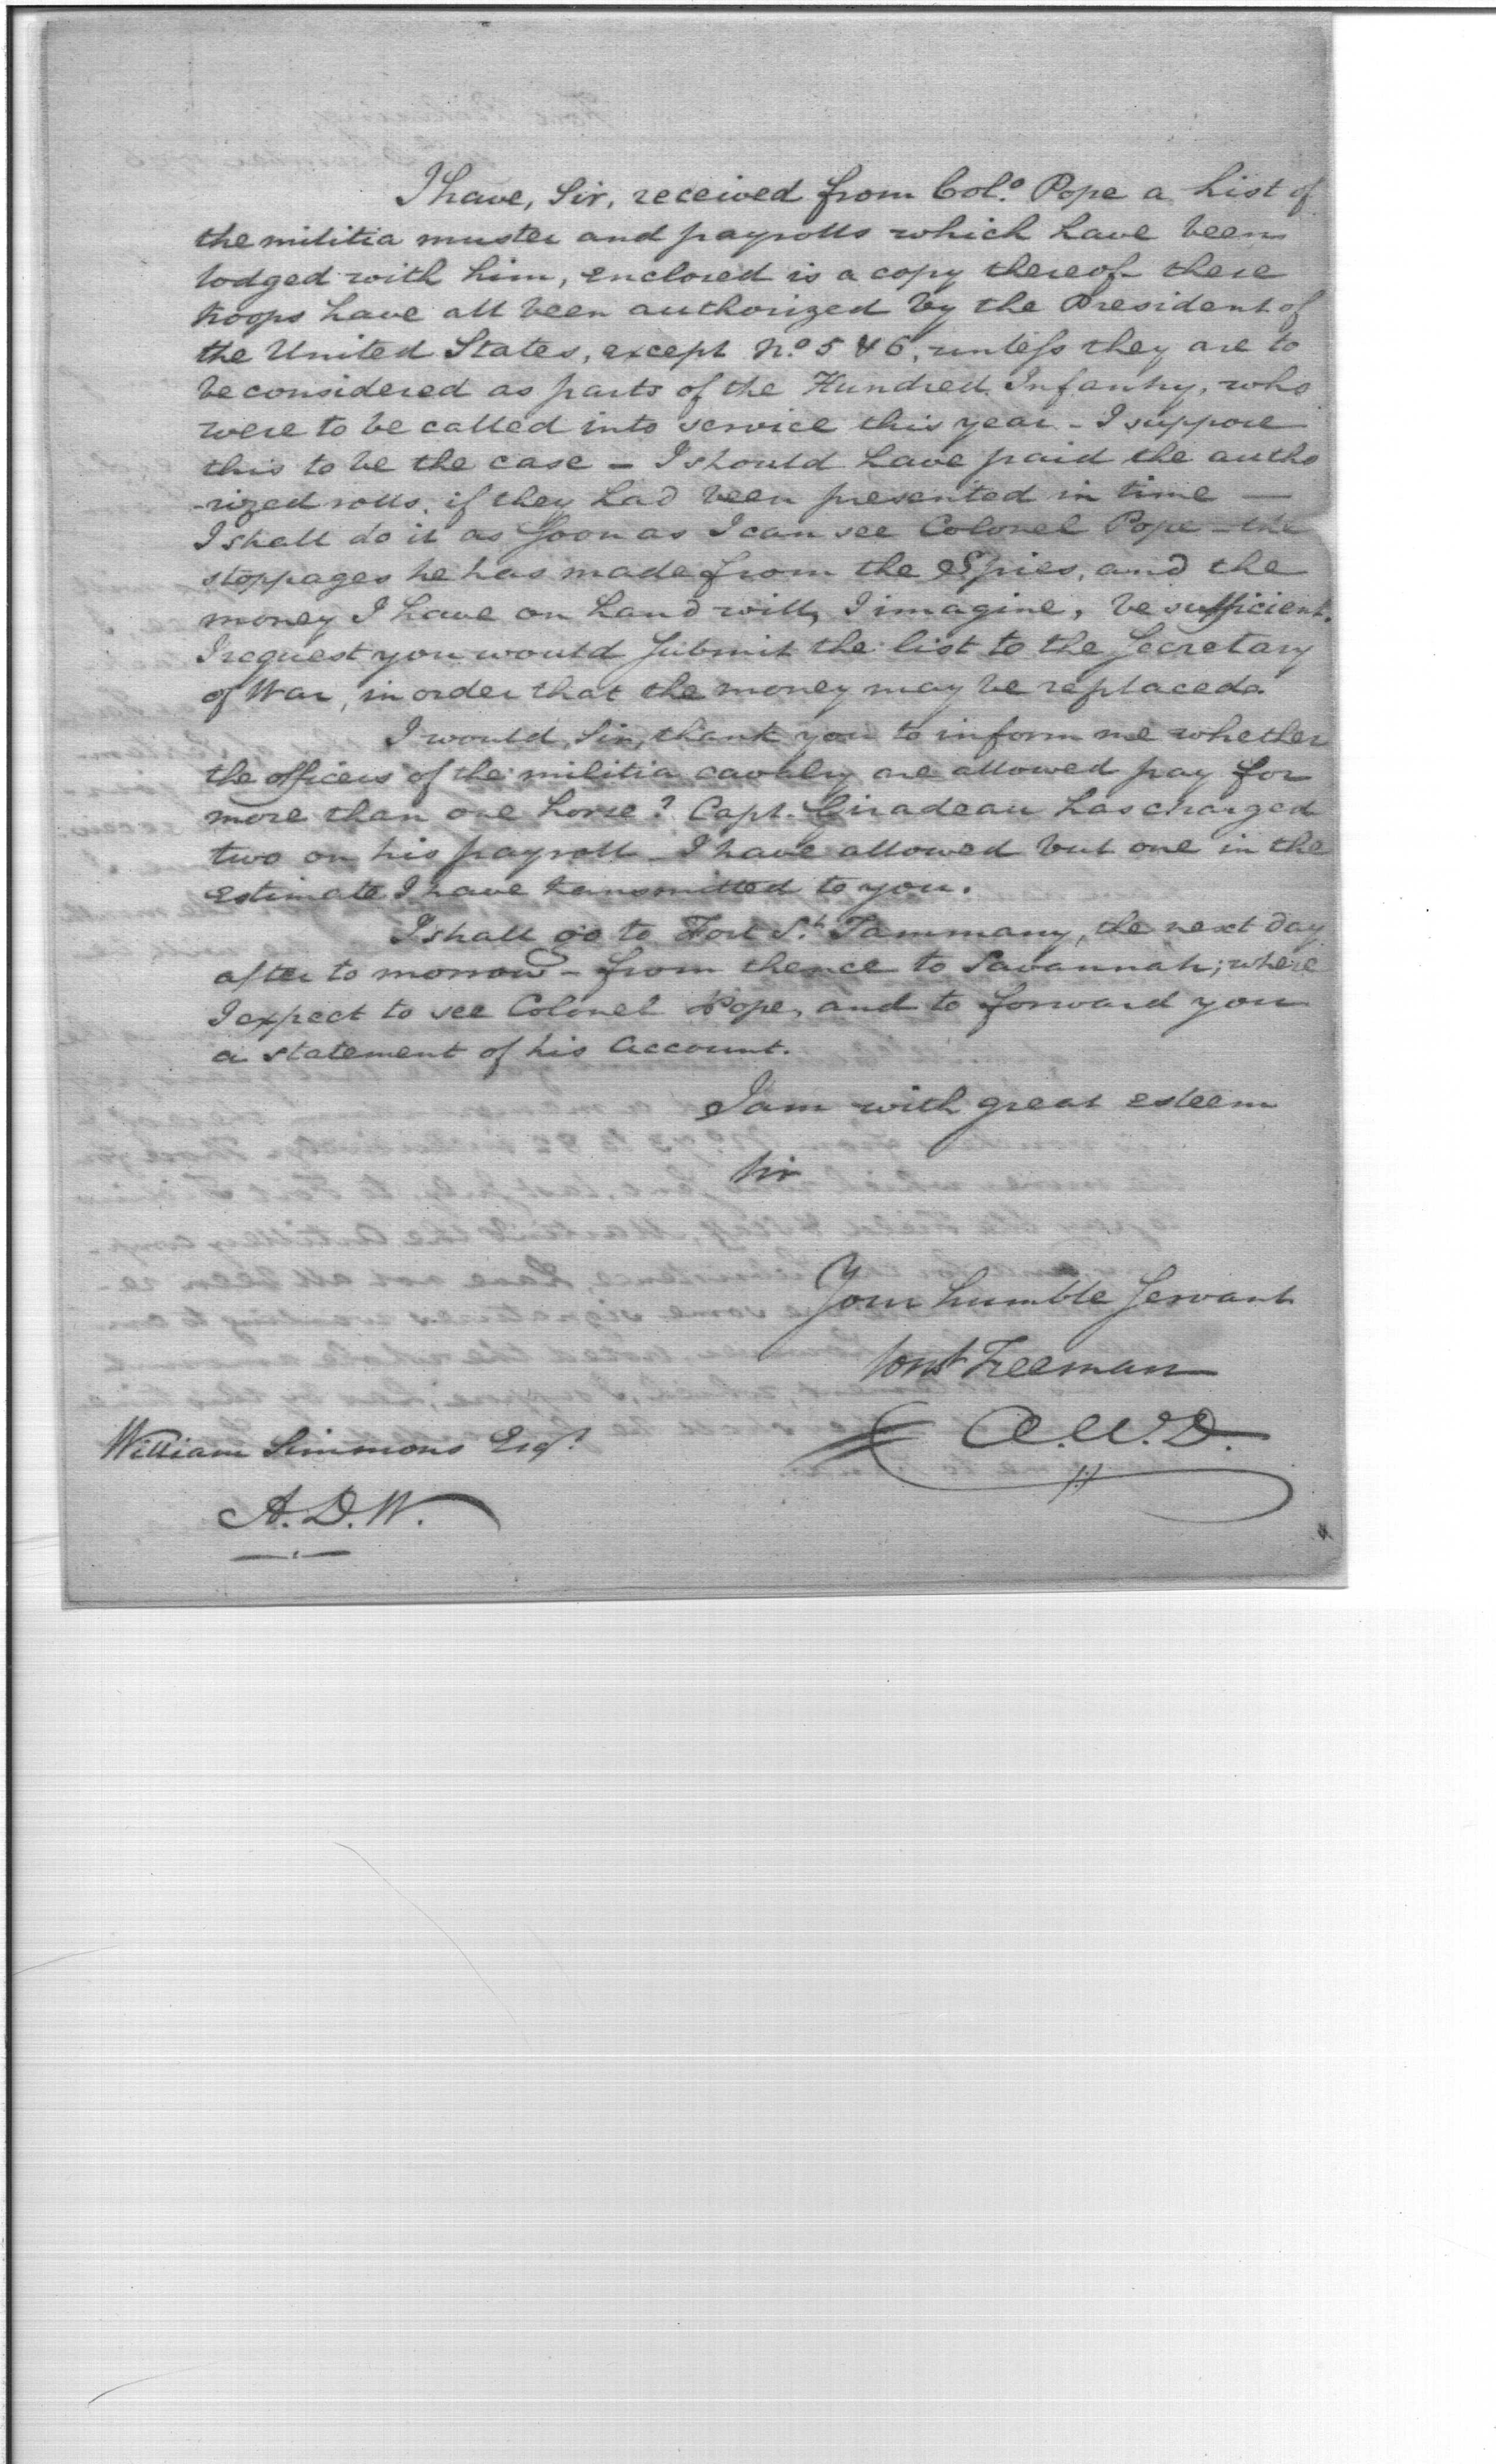 I have, Sir, received from Col.º Pope a List of
the militia muster and payrolls which have been
lodged with him, enclosed is a copy thereof - these
troops have all been authorized by the President of
the United States, except N.º 5 & 6, unless they are to
be considered as parts of the Hundred Infantry, who
were to be called into service this year - I suppose
this to be the case - I should have paid the autho
-rized rolls, if they had been presented in time —
I shall do it as Soon as I can see Colonel Pope - the
stoppages he has made from the Spies, and the
money I have on hand will, I imagine, be sufficient.
I request you would Submit the list to the Secretary
of War, in order that the money may be replaced.
I would, Sir, thank you to inform me whether
the officers of the militia cavalry are allowed pay for
more than one horse? Capt. Giradeau has charged
two on his payroll - I have allowed but one in the
estimate I have transmitted to you.
I shall go to Fort S.t Tammany, the next day
after to morrow - from thence to Savannah; where
I expect to see Colonel Pope, and to forward you
a statement of his Account.
I am with great esteem
Sir
Your humble Servant
Const Freeman
A.W.D.
William Simmons Esq.r
A.D.W.